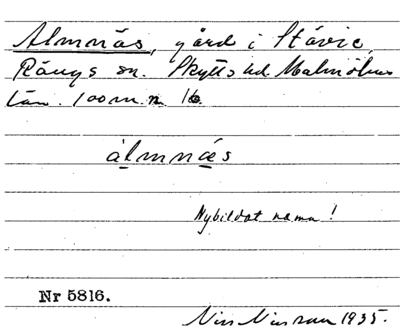 Almnäs, gård i Stävie,
Rängs sn. Skytts hd Malmöhus
län. 100 m.n. 16.
àlmnás
Nybildat namn!
Nr 5816.
Nils Nilsson 1935.